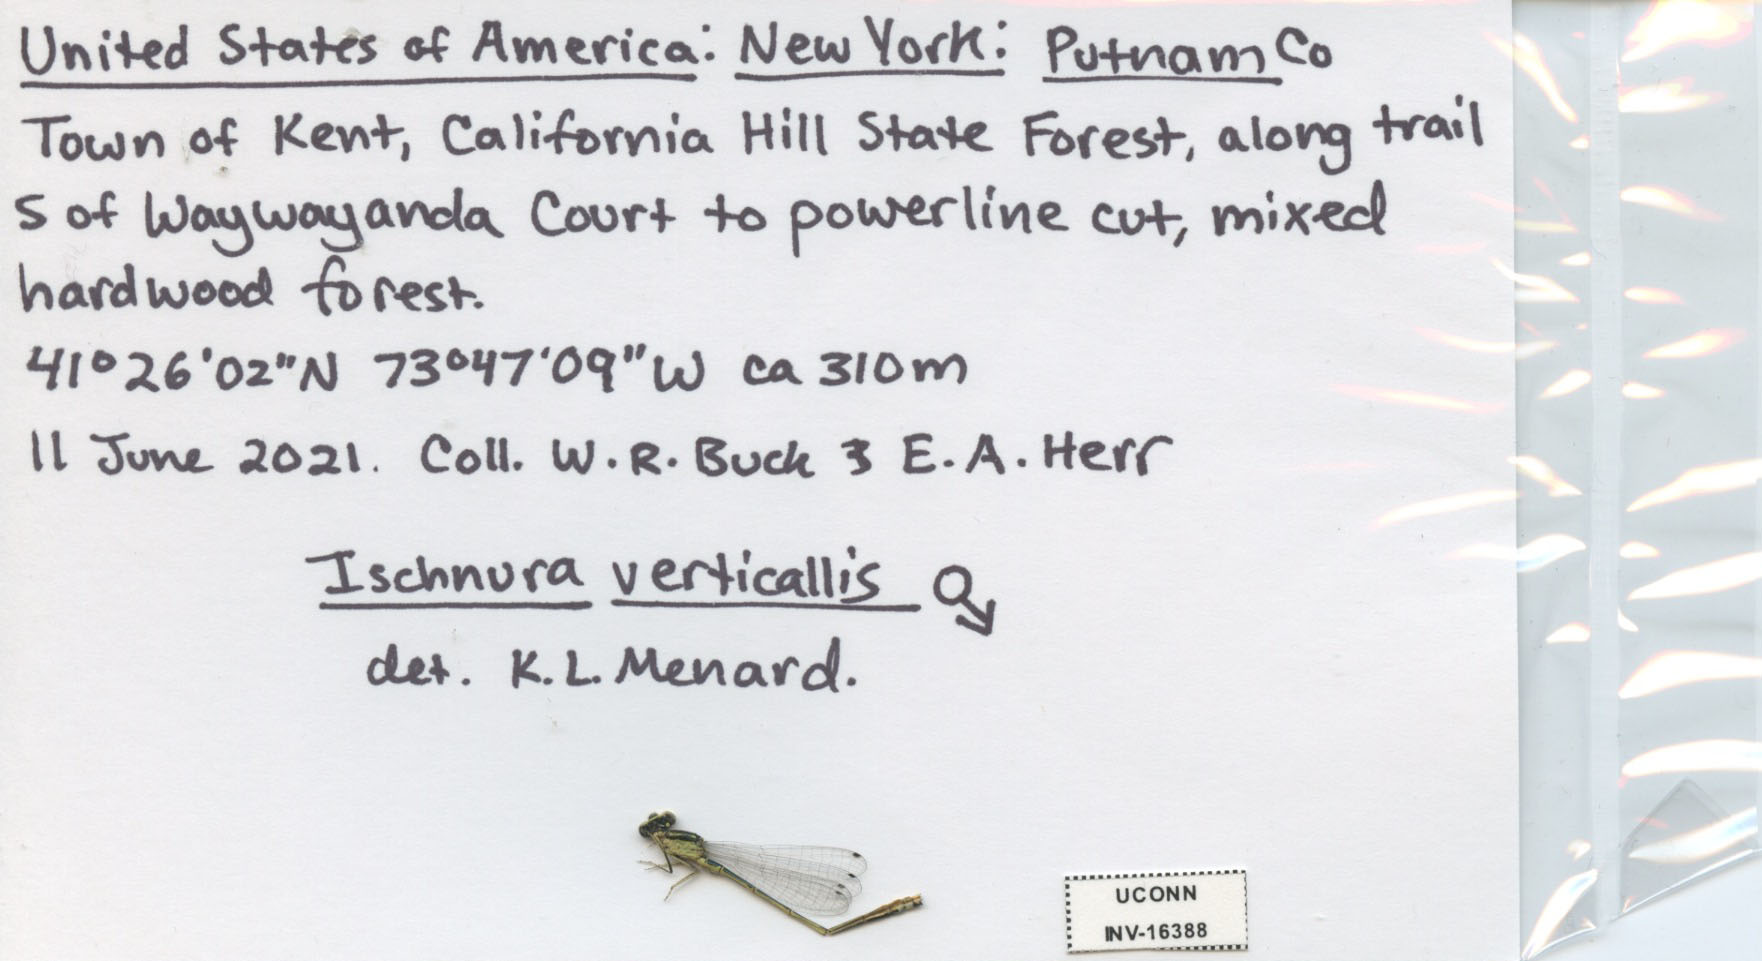 United States of America: New York: Putnam Co
Town of Kent, California Hill State Forest, along trail
S of Waywayanda Court to powerline cut, mixed
hardwood forest.
41°26'02"N 73°47'09"W ca 310m
11 June 2021. Coll. W.R. Buck & E.A. Herr
Ischnura verticallis ♂
det. K.L. Menard.
UCONN
INV-16388